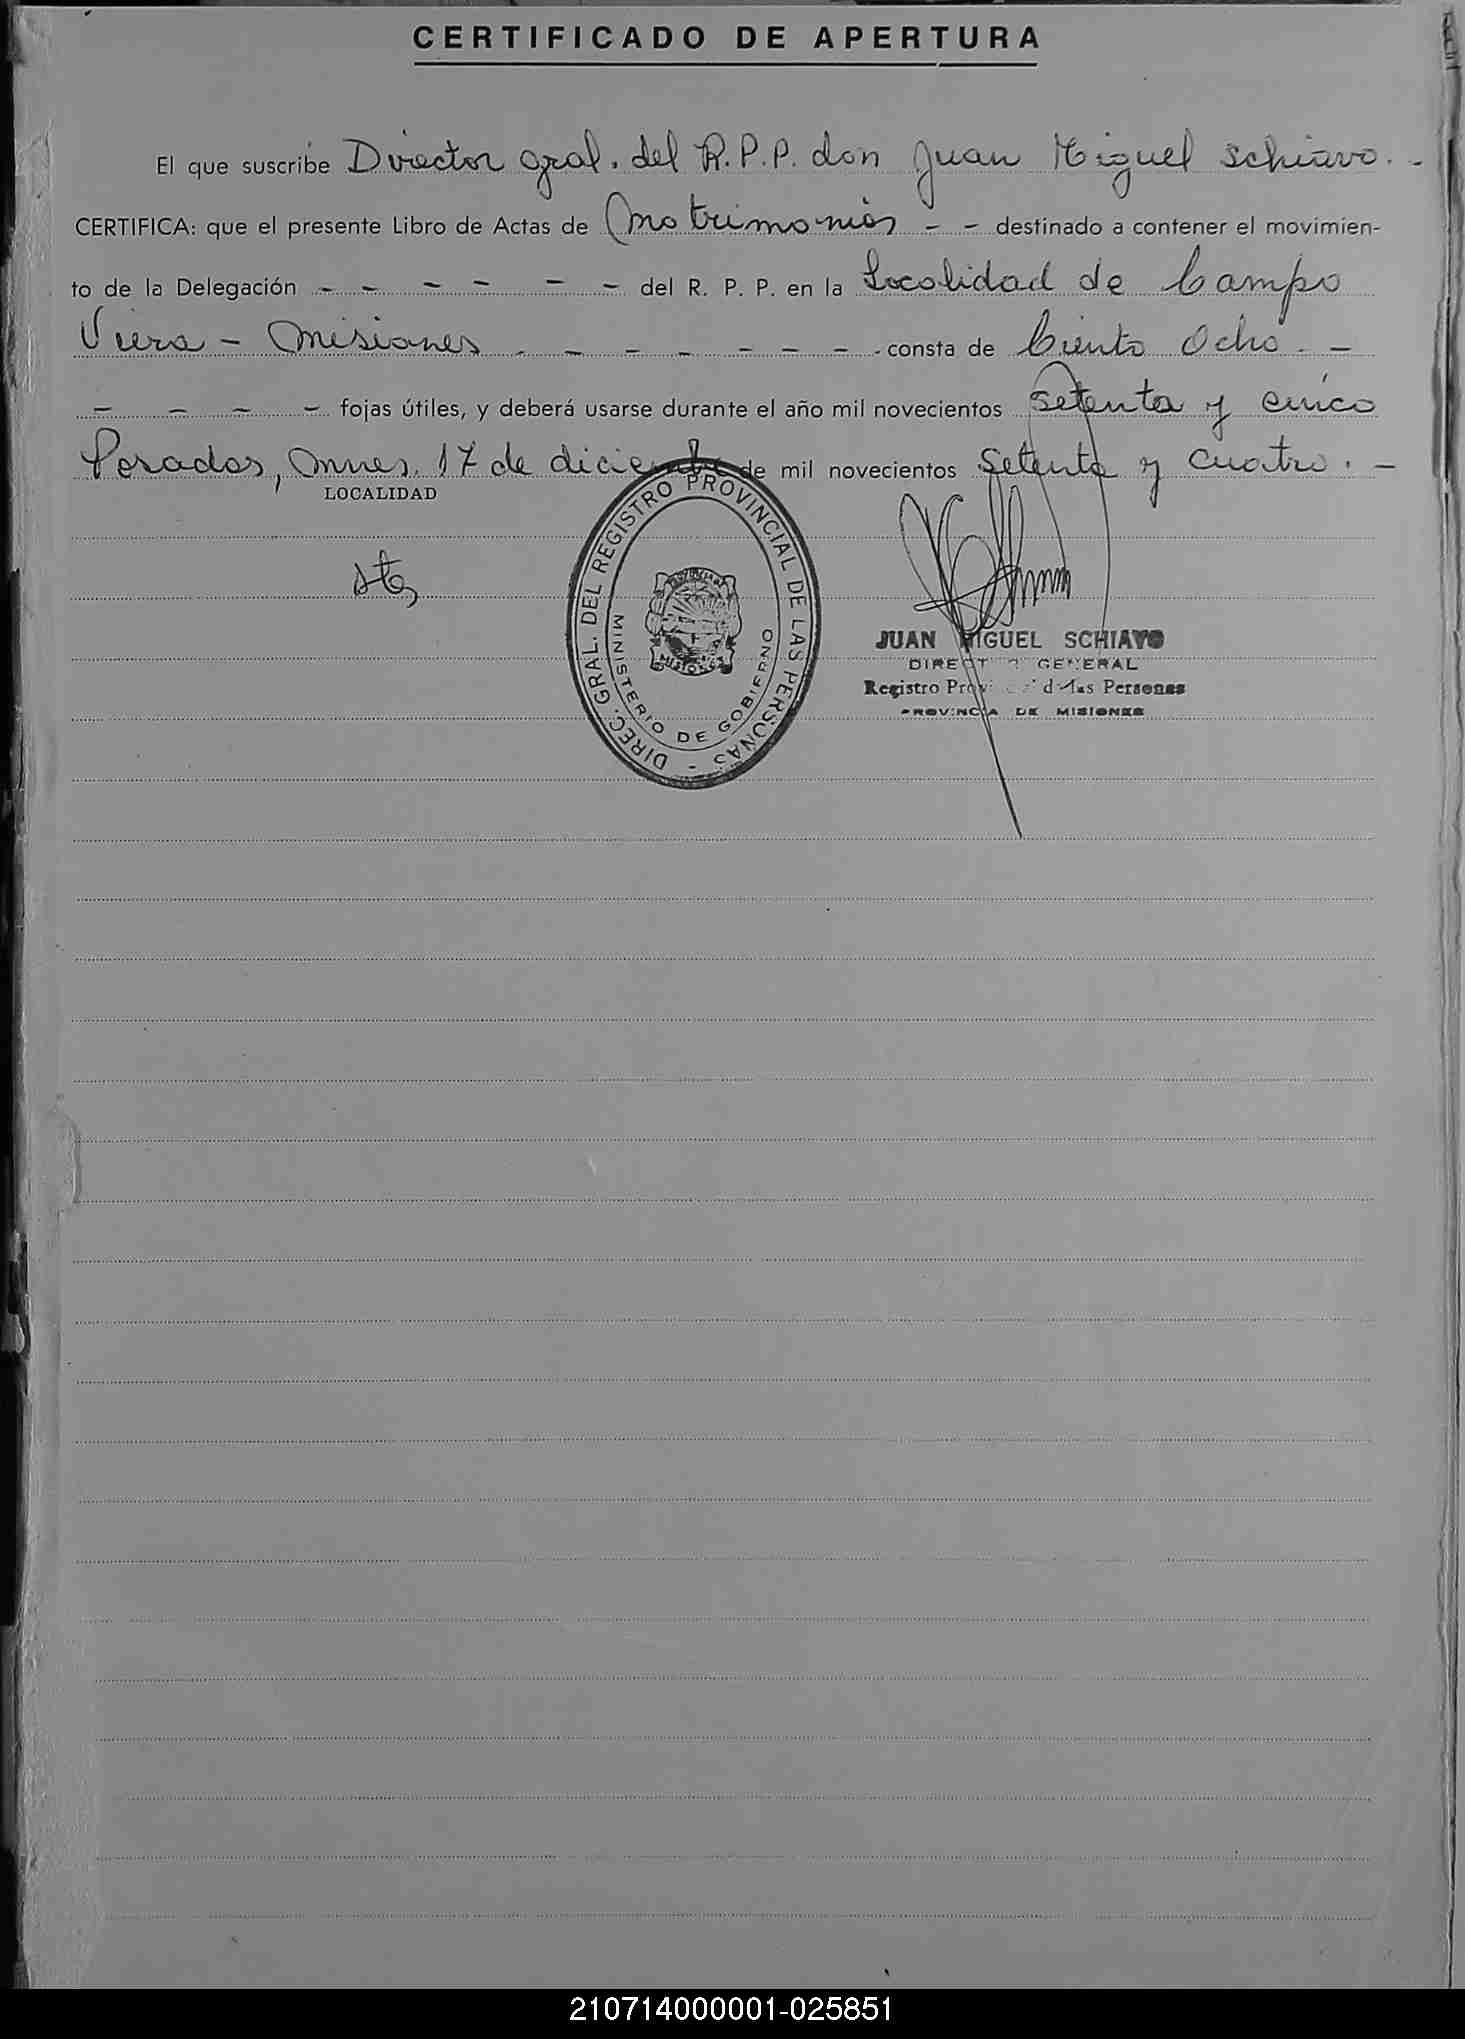 CERTIFICADO DE APERTURA
El que suscribe Director Gral. del R.P.P. don Juan Miguel Schiavo. -
CERTIFICA: que el presente Libro de Actas de Matrimonios - - destinado a contener el movimien-
to de la Delegación - - - - - - del R. P. P. en la Localidad de Campo
Viera - Misiones - - - - - - - consta de Ciento Ocho. -
- - - - fojas útiles, y deberá usarse durante el año mil novecientos setenta y cinco
Posadas, Mnes, 17 de diciembre de mil novecientos setenta y cuatro. -
LOCALIDAD
DIREC. GRAL. DEL REGISTRO PROVINCIAL DE LAS PERSONAS -
MINISTERIO DE GOBIERNO
MISIONES
JUAN MIGUEL SCHIAVO
DIRECTOR GENERAL
Registro Provincial de las Personas
PROVINCIA DE MISIONES
210714000001-025851